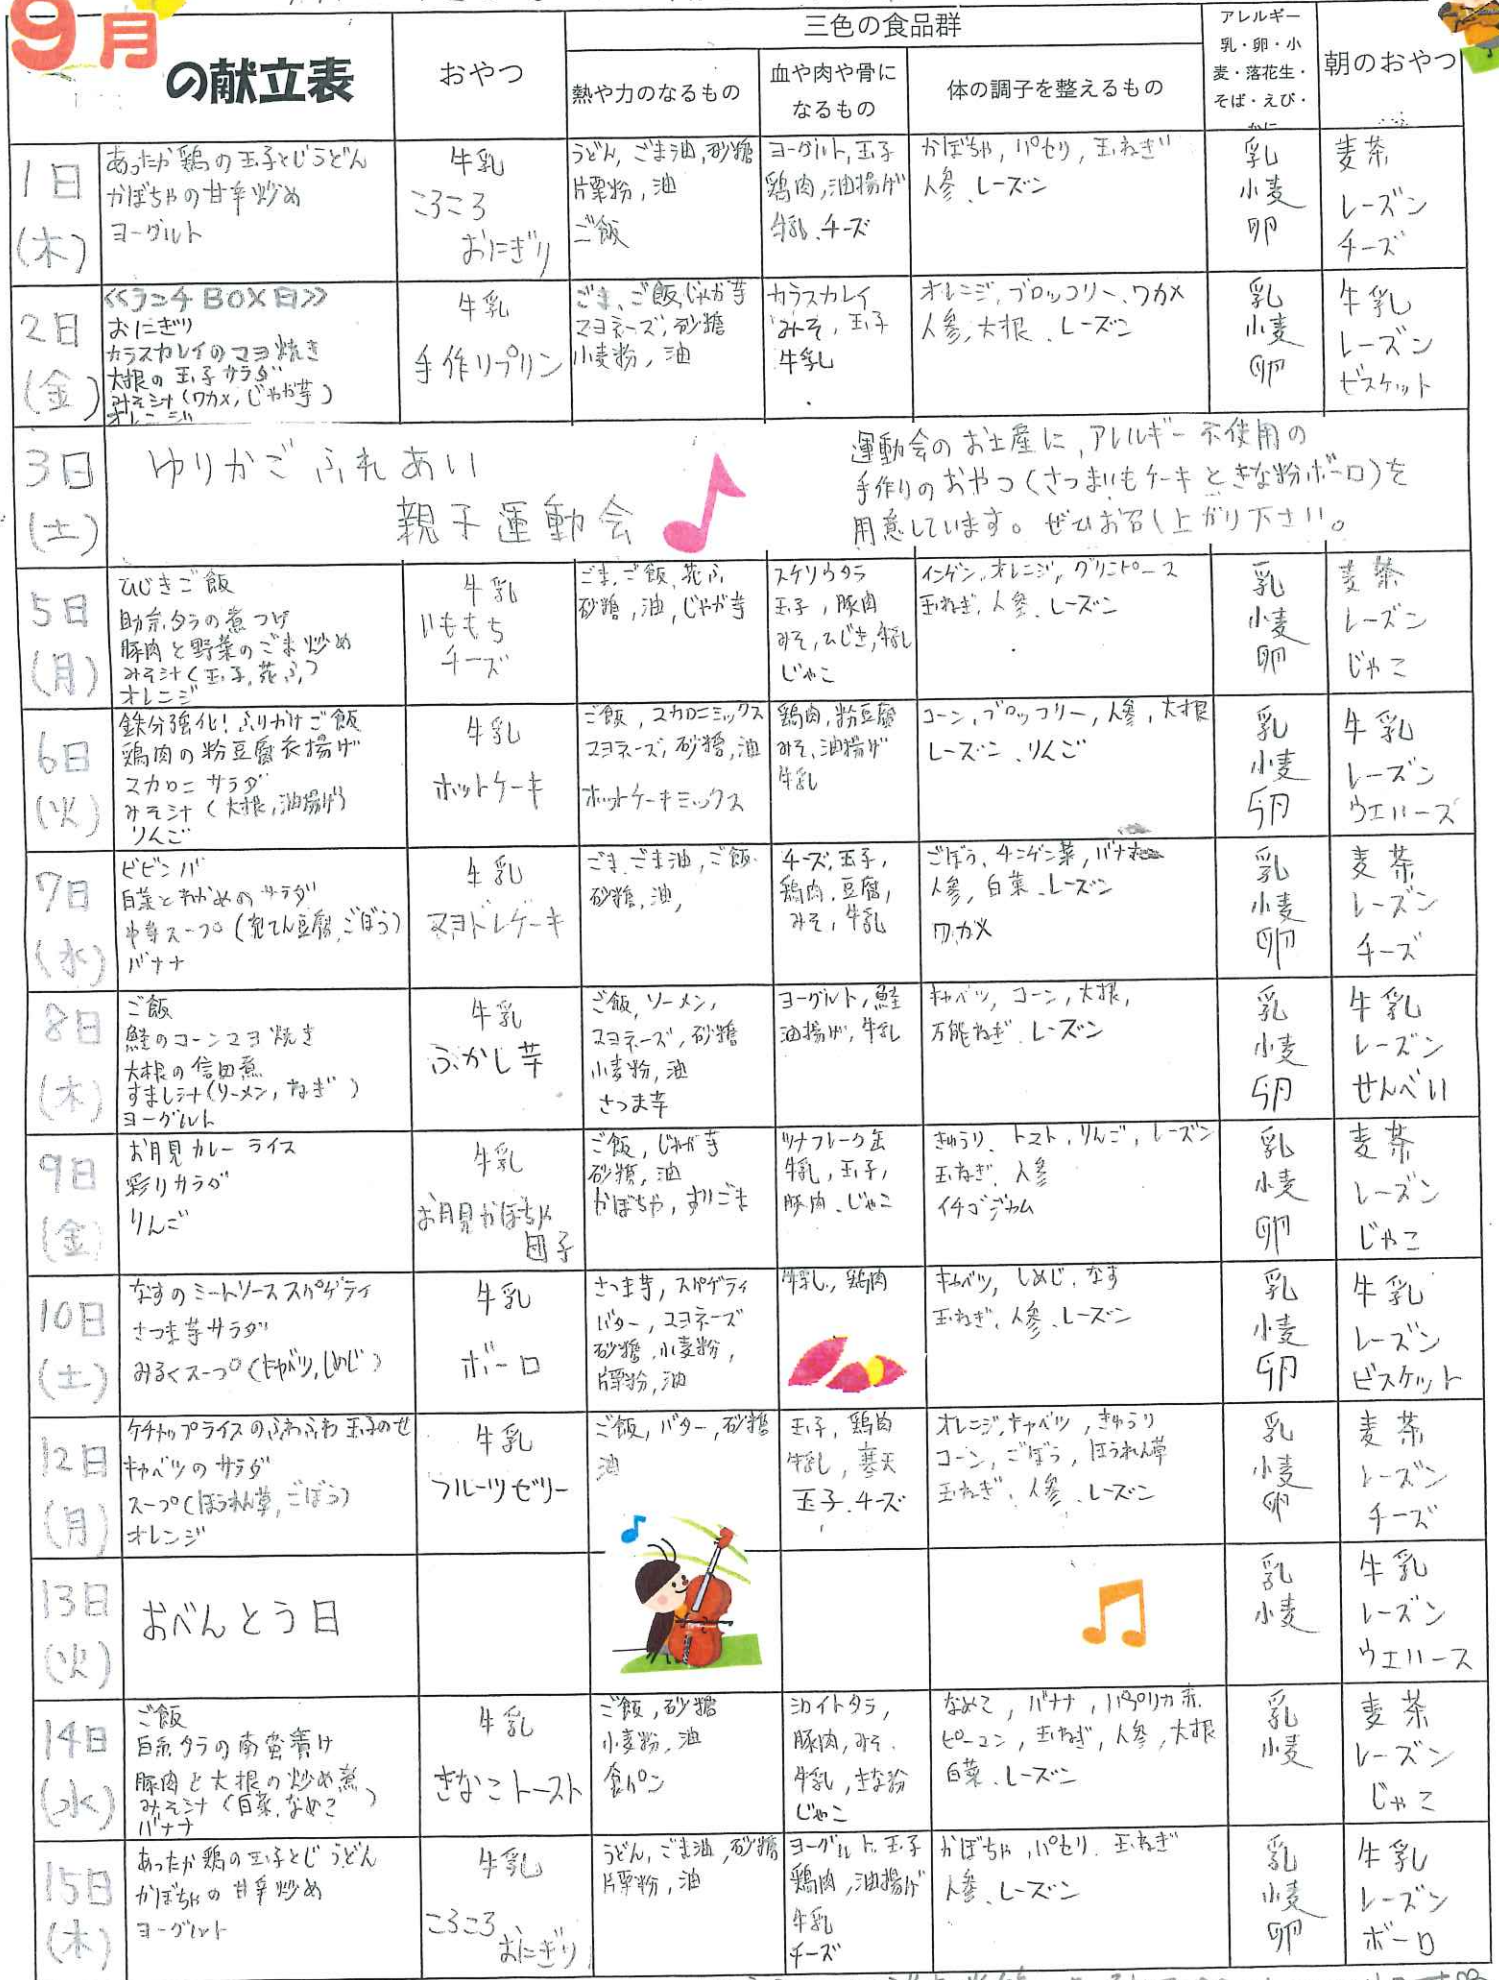 9月
の献立表
おやつ
三色の食品群
熱や力のなるもの
血や肉や骨に
なるもの
体の調子を整えるもの
アレルギー
乳・卵・小
麦・落花生・
そば・えび・
かに
朝のおやつ
1日
(木)
あったか鶏の玉子とじうどん
かぼちゃの甘辛炒め
ヨーグルト
牛乳
ころころ
おにぎり
うどん, ごま油, 砂糖
片栗粉, 油
ご飯
ヨーグルト, 玉子
鶏肉, 油揚げ
牛乳、チーズ
かぼちゃ, パセリ, 玉ねぎ
人参、レーズン
乳
小麦
卵
麦茶
レーズン
チーズ
2日
(金)
≪ランチBOX日≫
おにぎり
カラスカレイのマヨ焼き
大根の玉子サラダ
みそ汁(ワカメ, じゃが芋)
オレンジ
牛乳
手作りプリン
ごま、ご飯, じゃが芋
マヨネーズ, 砂糖
小麦粉, 油
カラスカレイ
みそ, 玉子
牛乳
オレンジ, ブロッコリー、ワカメ
人参, 大根、レーズン
乳
小麦
卵
牛乳
レーズン
ビスケット
3日
(土)
ゆりかごふれあい
親子運動会
運動会のお土産に, アレルギー不使用の
手作りのおやつ(さつまいもケーキときな粉ボーロ)を
用意しています。ぜひお召し上がり下さい。
5日
(月)
ひじきご飯
助宗タラの煮つけ
豚肉と野菜のごま炒め
みそ汁(玉子, 花ふ)
オレンジ
牛乳
いももち
チーズ
ごま, ご飯, 花ふ
砂糖, 油, じゃが芋
スケソウタラ
玉子, 豚肉
みそ, ひじき, 牛乳
じゃこ
インゲン, オレンジ, グリンピース
玉ねぎ, 人参、レーズン
乳
小麦
卵
麦茶
レーズン
じゃこ
6日
(火)
鉄分強化! ふりかけご飯
鶏肉の粉豆腐衣揚げ
マカロニサラダ
みそ汁(大根, 油揚げ)
りんご
牛乳
ホットケーキ
ご飯, マカロニミックス
マヨネーズ, 砂糖, 油
ホットケーキミックス
鶏肉, 粉豆腐
みそ, 油揚げ
牛乳
コーン, ブロッコリー, 人参, 大根
レーズン、りんご
乳
小麦
卵
牛乳
レーズン
ウエハース
7日
(水)
ビビンバ
白菜とわかめのサラダ
中華スープ(寛てん豆腐, ごぼう)
バナナ
牛乳
マヨドレケーキ
ごま、ごま油, ご飯
砂糖, 油,
チーズ, 玉子,
鶏肉, 豆腐,
みそ, 牛乳
ごぼう, チンゲン菜, バナナ
人参, 白菜、レーズン
ワカメ
乳
小麦
卵
麦茶
レーズン
チーズ
8日
(木)
ご飯
鮭のコーンマヨ焼き
大根の信田煮
すまし汁(ソーメン, ねぎ)
ヨーグルト
牛乳
ふかし芋
ご飯, ソーメン,
マヨネーズ, 砂糖
小麦粉, 油
さつま芋
ヨーグルト, 鮭
油揚げ, 牛乳
キャベツ, コーン, 大根,
万能ねぎ、レーズン
乳
小麦
卵
牛乳
レーズン
せんべい
9日
(金)
お月見カレーライス
彩りサラダ
りんご
牛乳
お月見かぼちゃ
団子
ご飯, じゃが芋
砂糖, 油
かぼちゃ, すりごま
ツナフレーク缶
牛乳, 玉子,
豚肉、じゃこ
きゅうり, トマト, りんご, レーズン
玉ねぎ, 人参
イチゴジャム
乳
小麦
卵
麦茶
レーズン
じゃこ
10日
(土)
なすのミートソーススパゲティ
さつま芋サラダ
みるくスープ(キャベツ, しめじ)
牛乳
ボーロ
さつま芋, スパゲティ
バター, マヨネーズ
砂糖, 小麦粉,
片栗粉, 油
牛乳, 鶏肉
キャベツ, しめじ, なす
玉ねぎ, 人参、レーズン
乳
小麦
卵
牛乳
レーズン
ビスケット
12日
(月)
ケチャップライスのふわふわ玉子のせ
キャベツのサラダ
スープ(ほうれん草, ごぼう)
オレンジ
牛乳
フルーツゼリー
ご飯, バター, 砂糖
油
玉子, 鶏肉
牛乳, 寒天
玉子、チーズ
オレンジ, キャベツ, きゅうり
コーン, ごぼう, ほうれん草
玉ねぎ, 人参、レーズン
乳
小麦
卵
麦茶
レーズン
チーズ
13日
(火)
おべんとう日
乳
小麦
牛乳
レーズン
ウエハース
14日
(水)
ご飯
白糸タラの南蛮漬け
豚肉と大根の炒め煮
みそ汁(白菜, なめこ)
バナナ
牛乳
きなこトースト
ご飯, 砂糖
小麦粉, 油
食パン
シロイトタラ,
豚肉, みそ,
牛乳, きな粉
じゃこ
なめこ, バナナ, パプリカ赤
ピーマン, 玉ねぎ, 人参, 大根
白菜、レーズン
乳
小麦
麦茶
レーズン
じゃこ
15日
(木)
あったか鶏の玉子とじうどん
かぼちゃの甘辛炒め
ヨーグルト
牛乳
ころころ
おにぎり
うどん, ごま油, 砂糖
片栗粉, 油
ヨーグルト, 玉子
鶏肉, 油揚げ
牛乳
チーズ
かぼちゃ, パセリ, 玉ねぎ
人参、レーズン
乳
小麦
卵
牛乳
レーズン
ボーロ